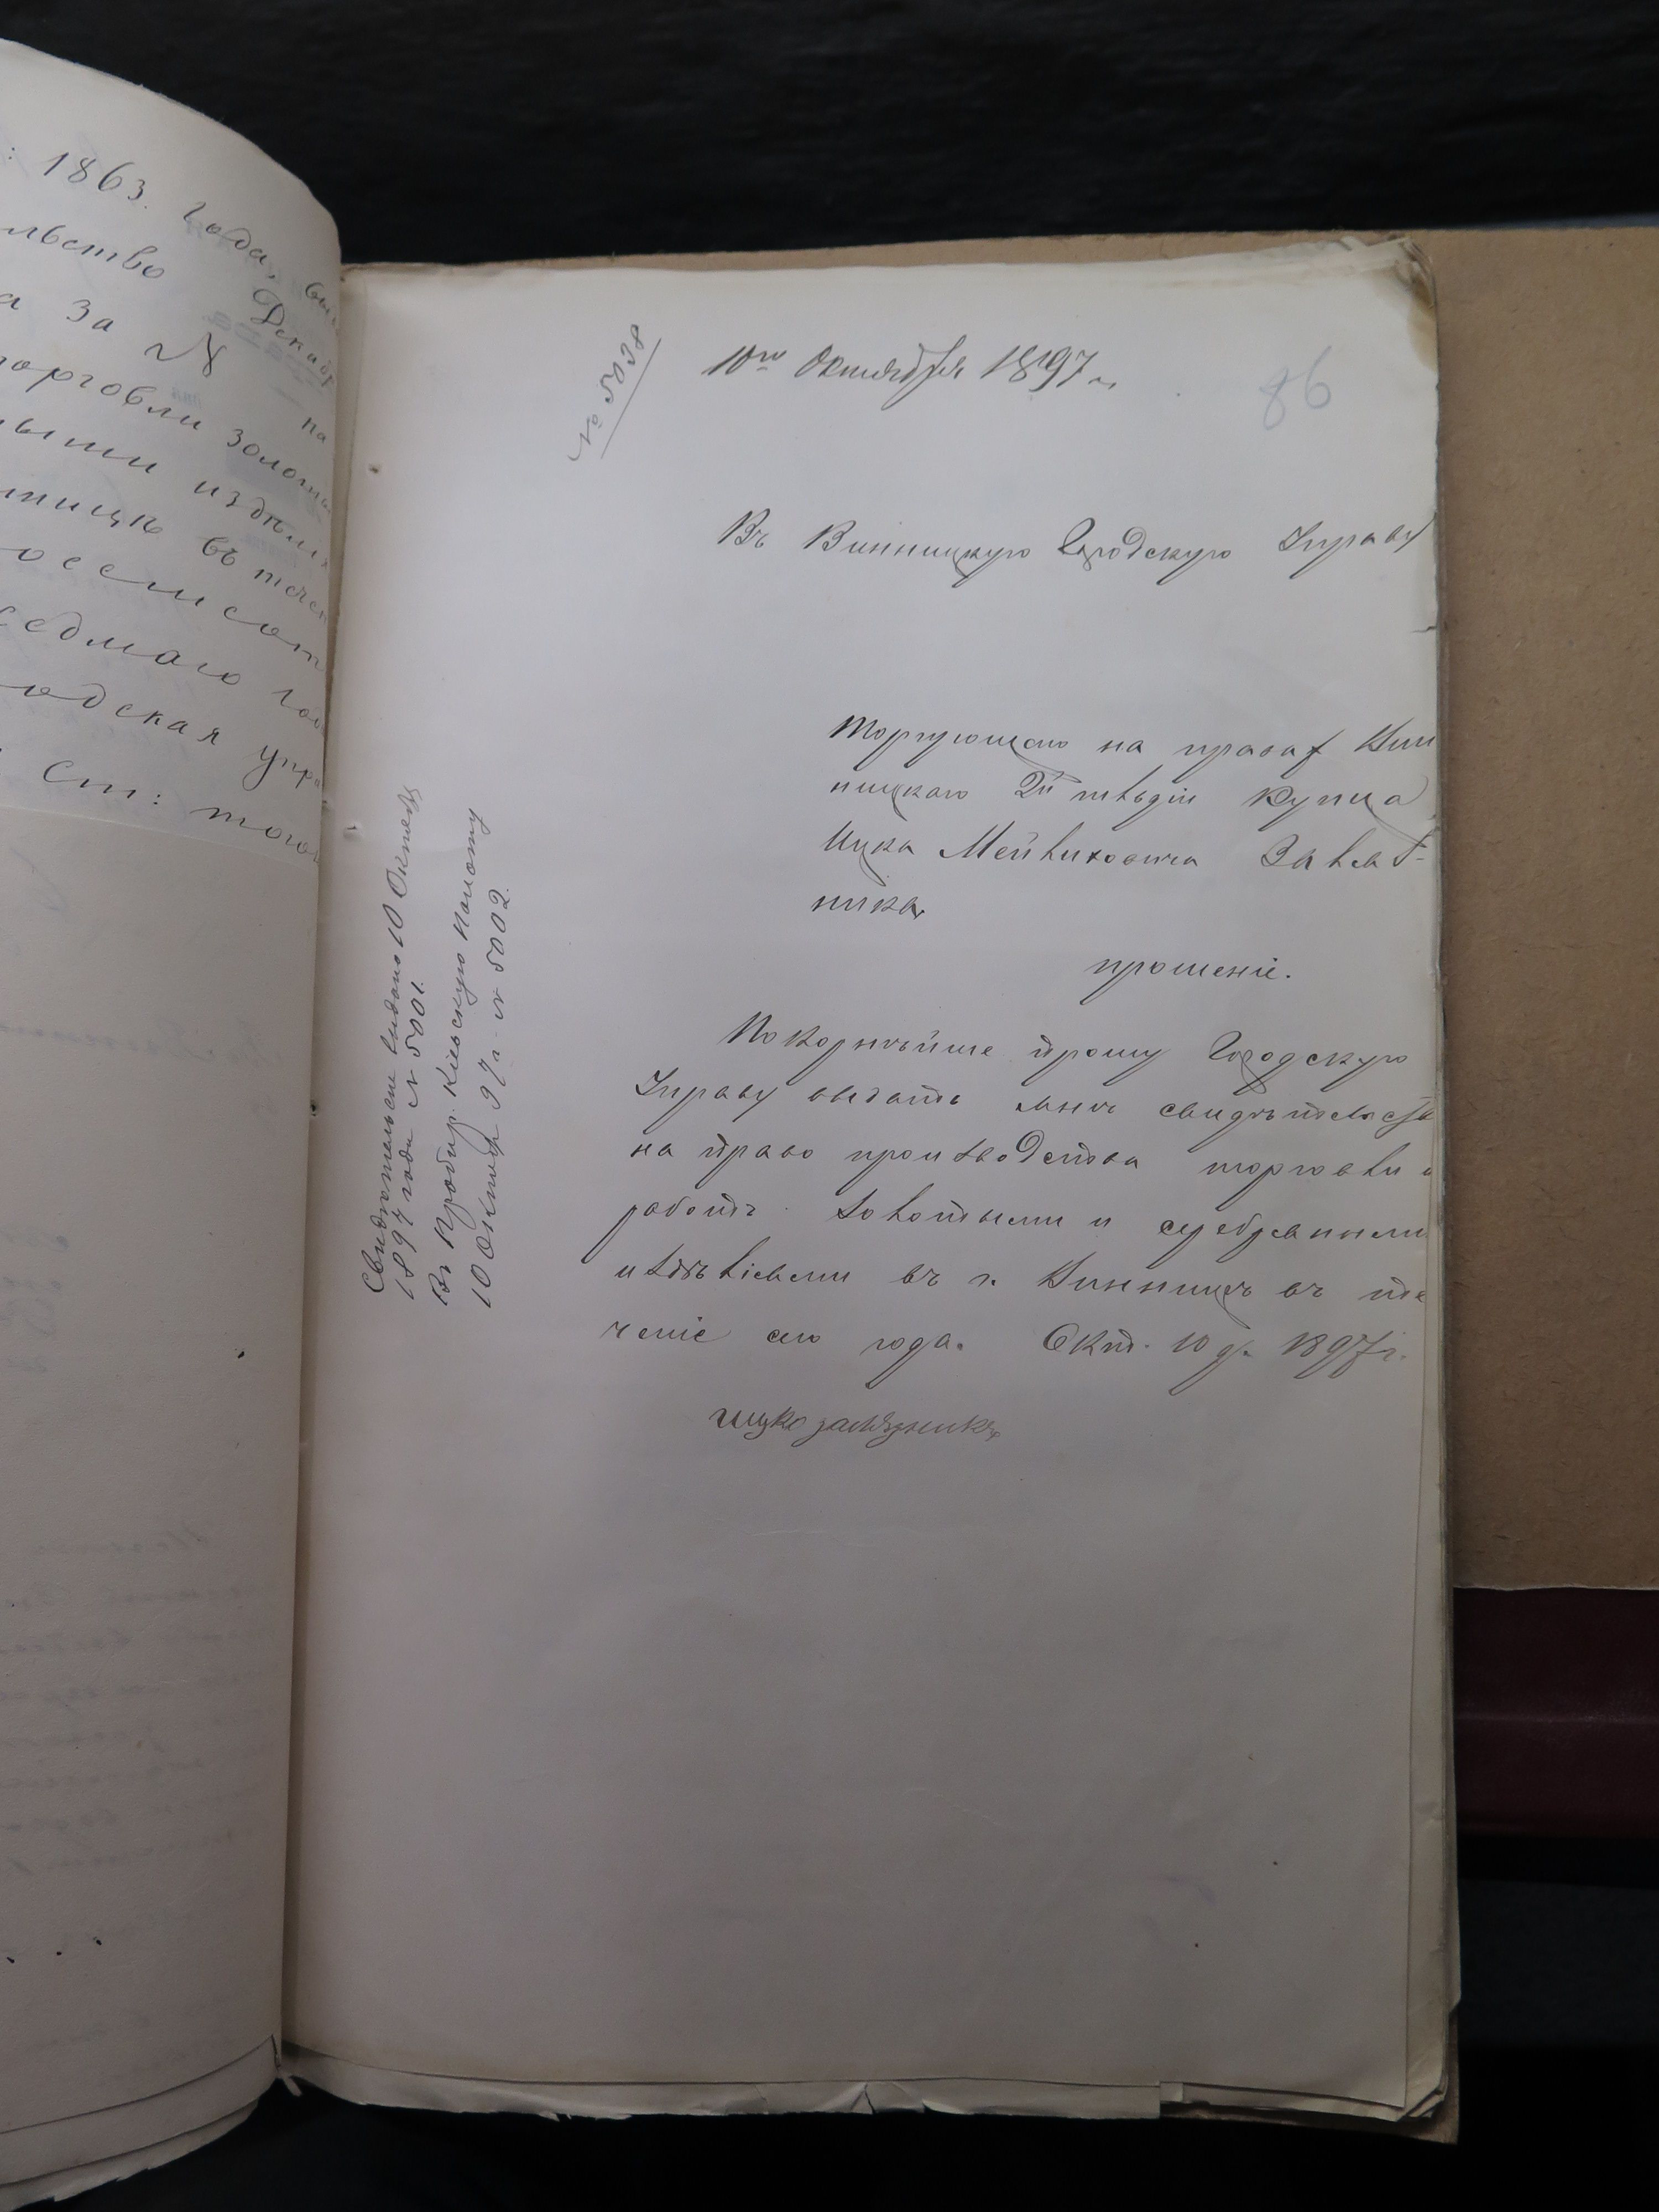 : 1863. года,
льство Декабр
а за № на
торговли золоты
ными издѣлі
нницѣ въ течен
восемьсот
седмаго год
одская упра
ст: того
№ 5038
10го Октября 1897 г.
86
Въ Винницкую Городскую Управу
Торгующаго на правах Вин
ницкаго 2й гильдіи Купца
Ицка
прошеніе.
Покорнѣйше прошу Городскую
Управу выдать мнѣ свидѣтельств
на право производства торговли и
работъ золотыми и серебрянными
издѣліями въ г. Винницѣ въ те
ченіе сего года. Окт. 10 д. 1897 г.
Ицко
Свидѣтельство выдано 10 Октября
1897 года № 5001.
Въ Пробир. Кіевскую Палатку
10 Октяб 97 г. № 5002.